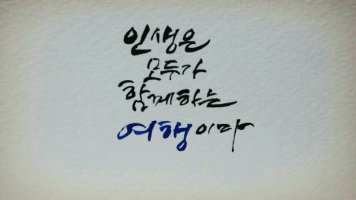 인생은
모두가
함께하는
여행이다